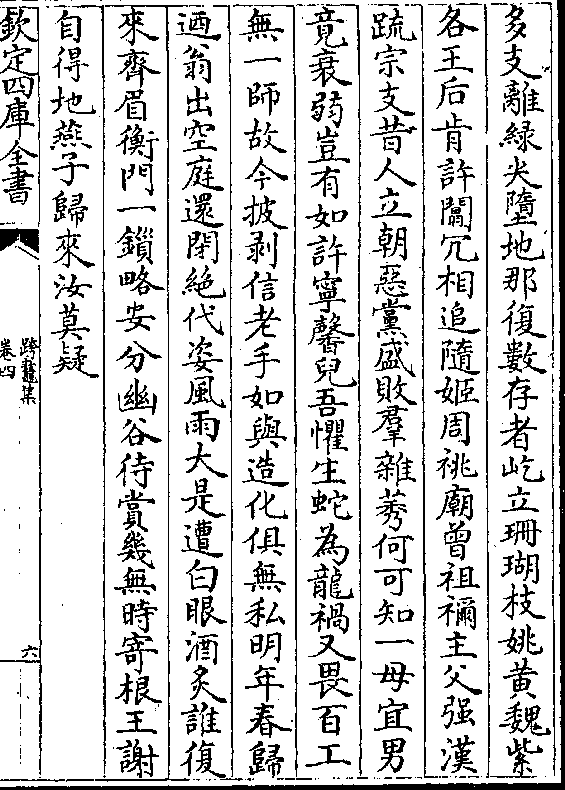 多支離綠尖墮地那復數存者屹立珊瑚枝姚黃魏紫
各王后肯許闒冗相追隨姬周祧廟曾祖禰主父强漢
疏宗支昔人立朝惡黨盛敗羣雜莠何可知一母宜男
竟衰弱豈有如許寧馨兒吾懼生蛇為龍禍又畏百工
無一師故今披剥信老手如與造化俱無私明年春歸
迺翁出空庭還閉絶代姿風雨大是遭白眼酒炙誰復
來齊眉衡門一鎖略安分幽谷待賞幾無時寄根王謝
自得地燕子歸來汝莫疑
欽定四庫全書
跨鼇集
卷四
六